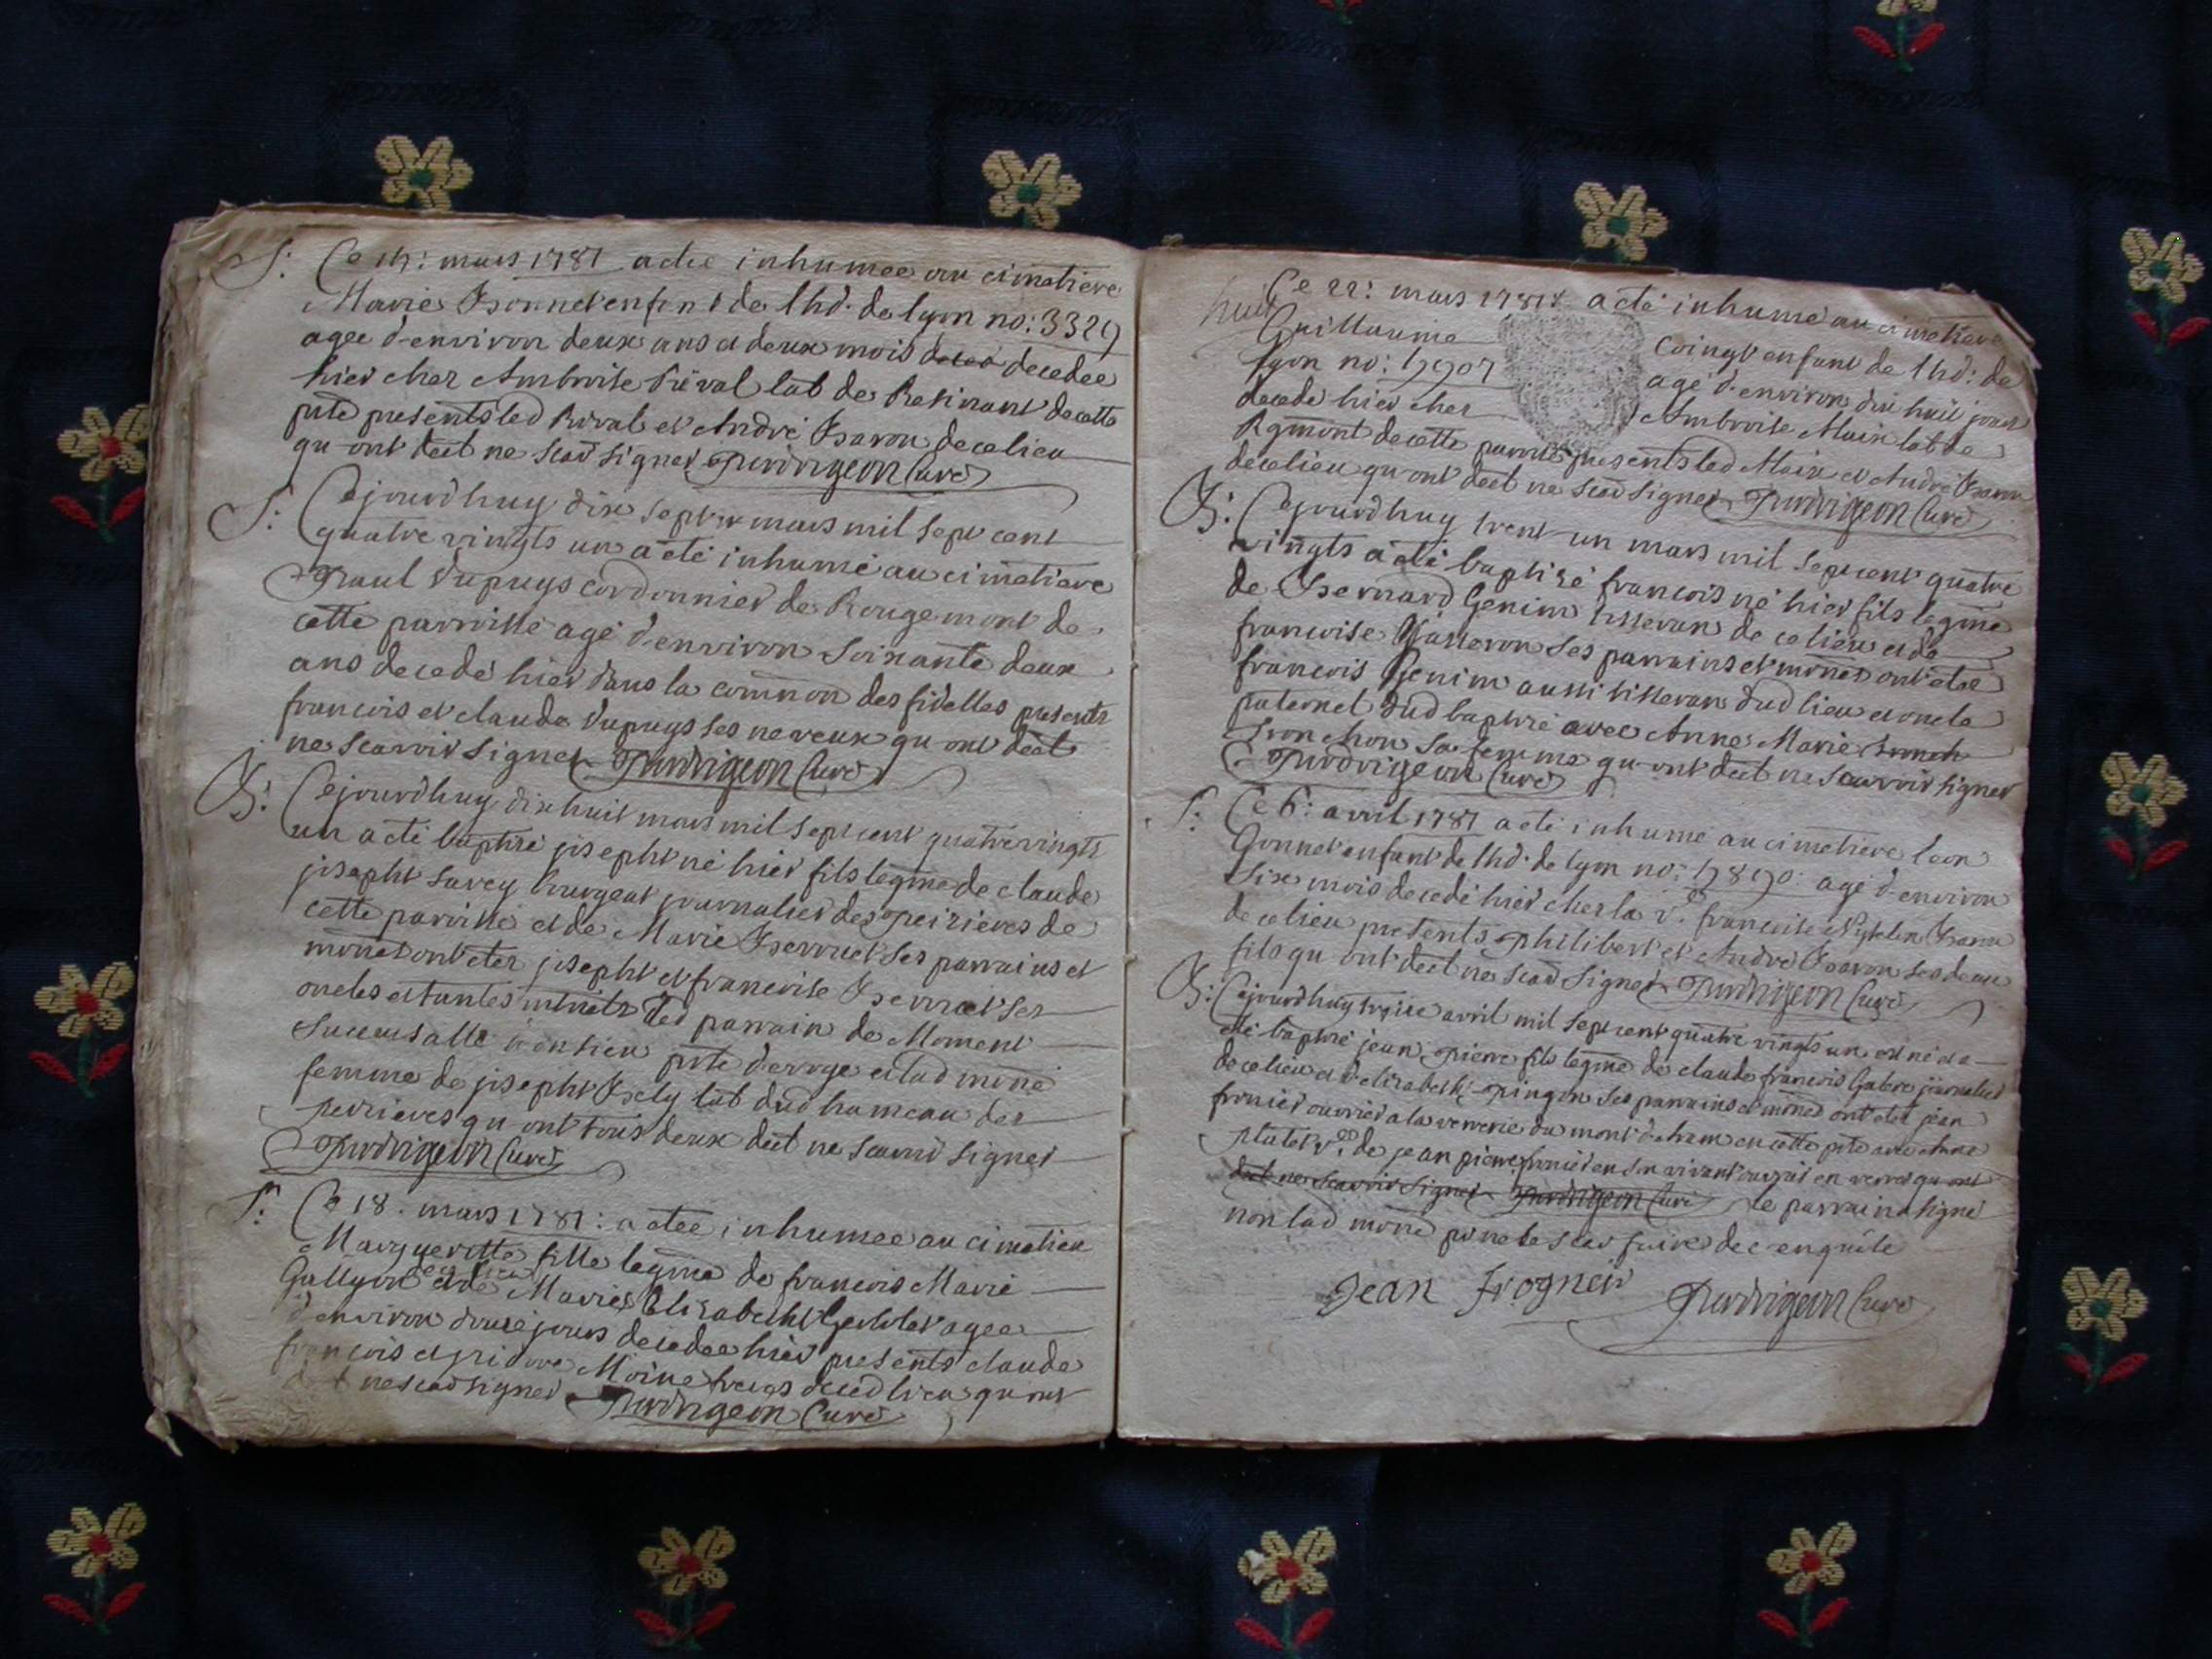 S: Ce 17: mars 1781 a eté inhumee au cimetiere
Marie Bonnet enfent de lhd. de lyon no: 3329
agee d'environ deux ans et deux mois decedee
hier chez Ambroise Prival lab de
pste presents led Prival et André Baron de ce lieu
qu ont deet ne scad signer Purdrigeon Curé
S: Cejourdhuy dix sept mars mil sept cent
quatre vingts un a eté inhumé au cimetiere
Paul Dupuys cordonnier de Rougemont de
cette parroisse agé d'environ soixante deux
ans decedé hier dans la common des fidelles presents
francois et claude Dupuys ses neveux qu ont deet
ne scavoir signer Purdrigeon Curé
B: Cejourdhuy dix huit mars mil sept cent quatre vingts
un a eté baptisé joseph né hier fils legme de claude
joseph Savey bourgeat journalier des peirieres de
cette parroisse et de Marie Berruet ses parrains et
mones ont etez joseph et francoise Berruet ses
oncles et tantes mtnels led parrain de Moment
Succursalle pste d'eroye et lad mone
femme de joseph Bely lab dud hameau des
perrieres qu ont tous deux deet ne scavoir signer
Purdrigeon Curé
S: Ce 18. mars 1781: a etee inhumee au cimetiere
Margueritte fille legme de francois Marie
Gallyon de ce lieu et de Marie Elizabeth agee
d'environ douze jours decedee hier presents claude
francois et pierre Moine freres de ced lieu qu ont
deet ne scad signer Purdrigeon Curé
huit Ce 22: mars 1781 a eté inhumé au cimetiere
Guillaume Coingt enfant de lhd: de
lyon no: 17907 agé d'environ dix huit jours
decedé hier chez Ambroise Maix lab de
Agmont de cette parroisse presents led Maix et André Baron
de ce lieu qu ont deet ne scad signer Purdrigeon Curé
B: Cejourdhuy trent un mars mil sept cent quatre
vingts a eté baptisé francois né hier fils legme
de Bernard Genim tisseran de ce lieu et de
francoise Vasseron ses parrains et mones ont eté
francois Genim aussi tisseran dud lieu et oncle
paternel dud baptisé avec Anne Marie
Tronchon sa femme qu ont deet ne scavoir signer
Purdrigeon Curé
S: Ce 6: avril 1781 a eté inhumé au cimetiere leon
Gonnet enfant de lhd. de lyon no: 17890: agé d'environ
six mois decedé hier chez la ve. francoise Baron
de ce lieu presents philibert et André Baron ses deux
fils qu ont deet ne scad signer Purdrigeon Curé
B: Cejourdhuy treize avril mil sept cent quatre vingts un est né et a
eté baptisé jean pierre fils legme de claude francois Galere journalier
de ce lieu et d'elizabeth pingon ses parrains et mones ont eté jean
fronier ouvrier a la verrerie du mont d'cham en cette pste avec Anne
ve. de jean pierre fronier en son vivant ouvrier en verre qu ont
deet ne scavoir signer Purdrigeon Curé le parrain a signé
non lad mone po ne le scav faire de e enquite
Jean Frogneir Purdrigeon Curé